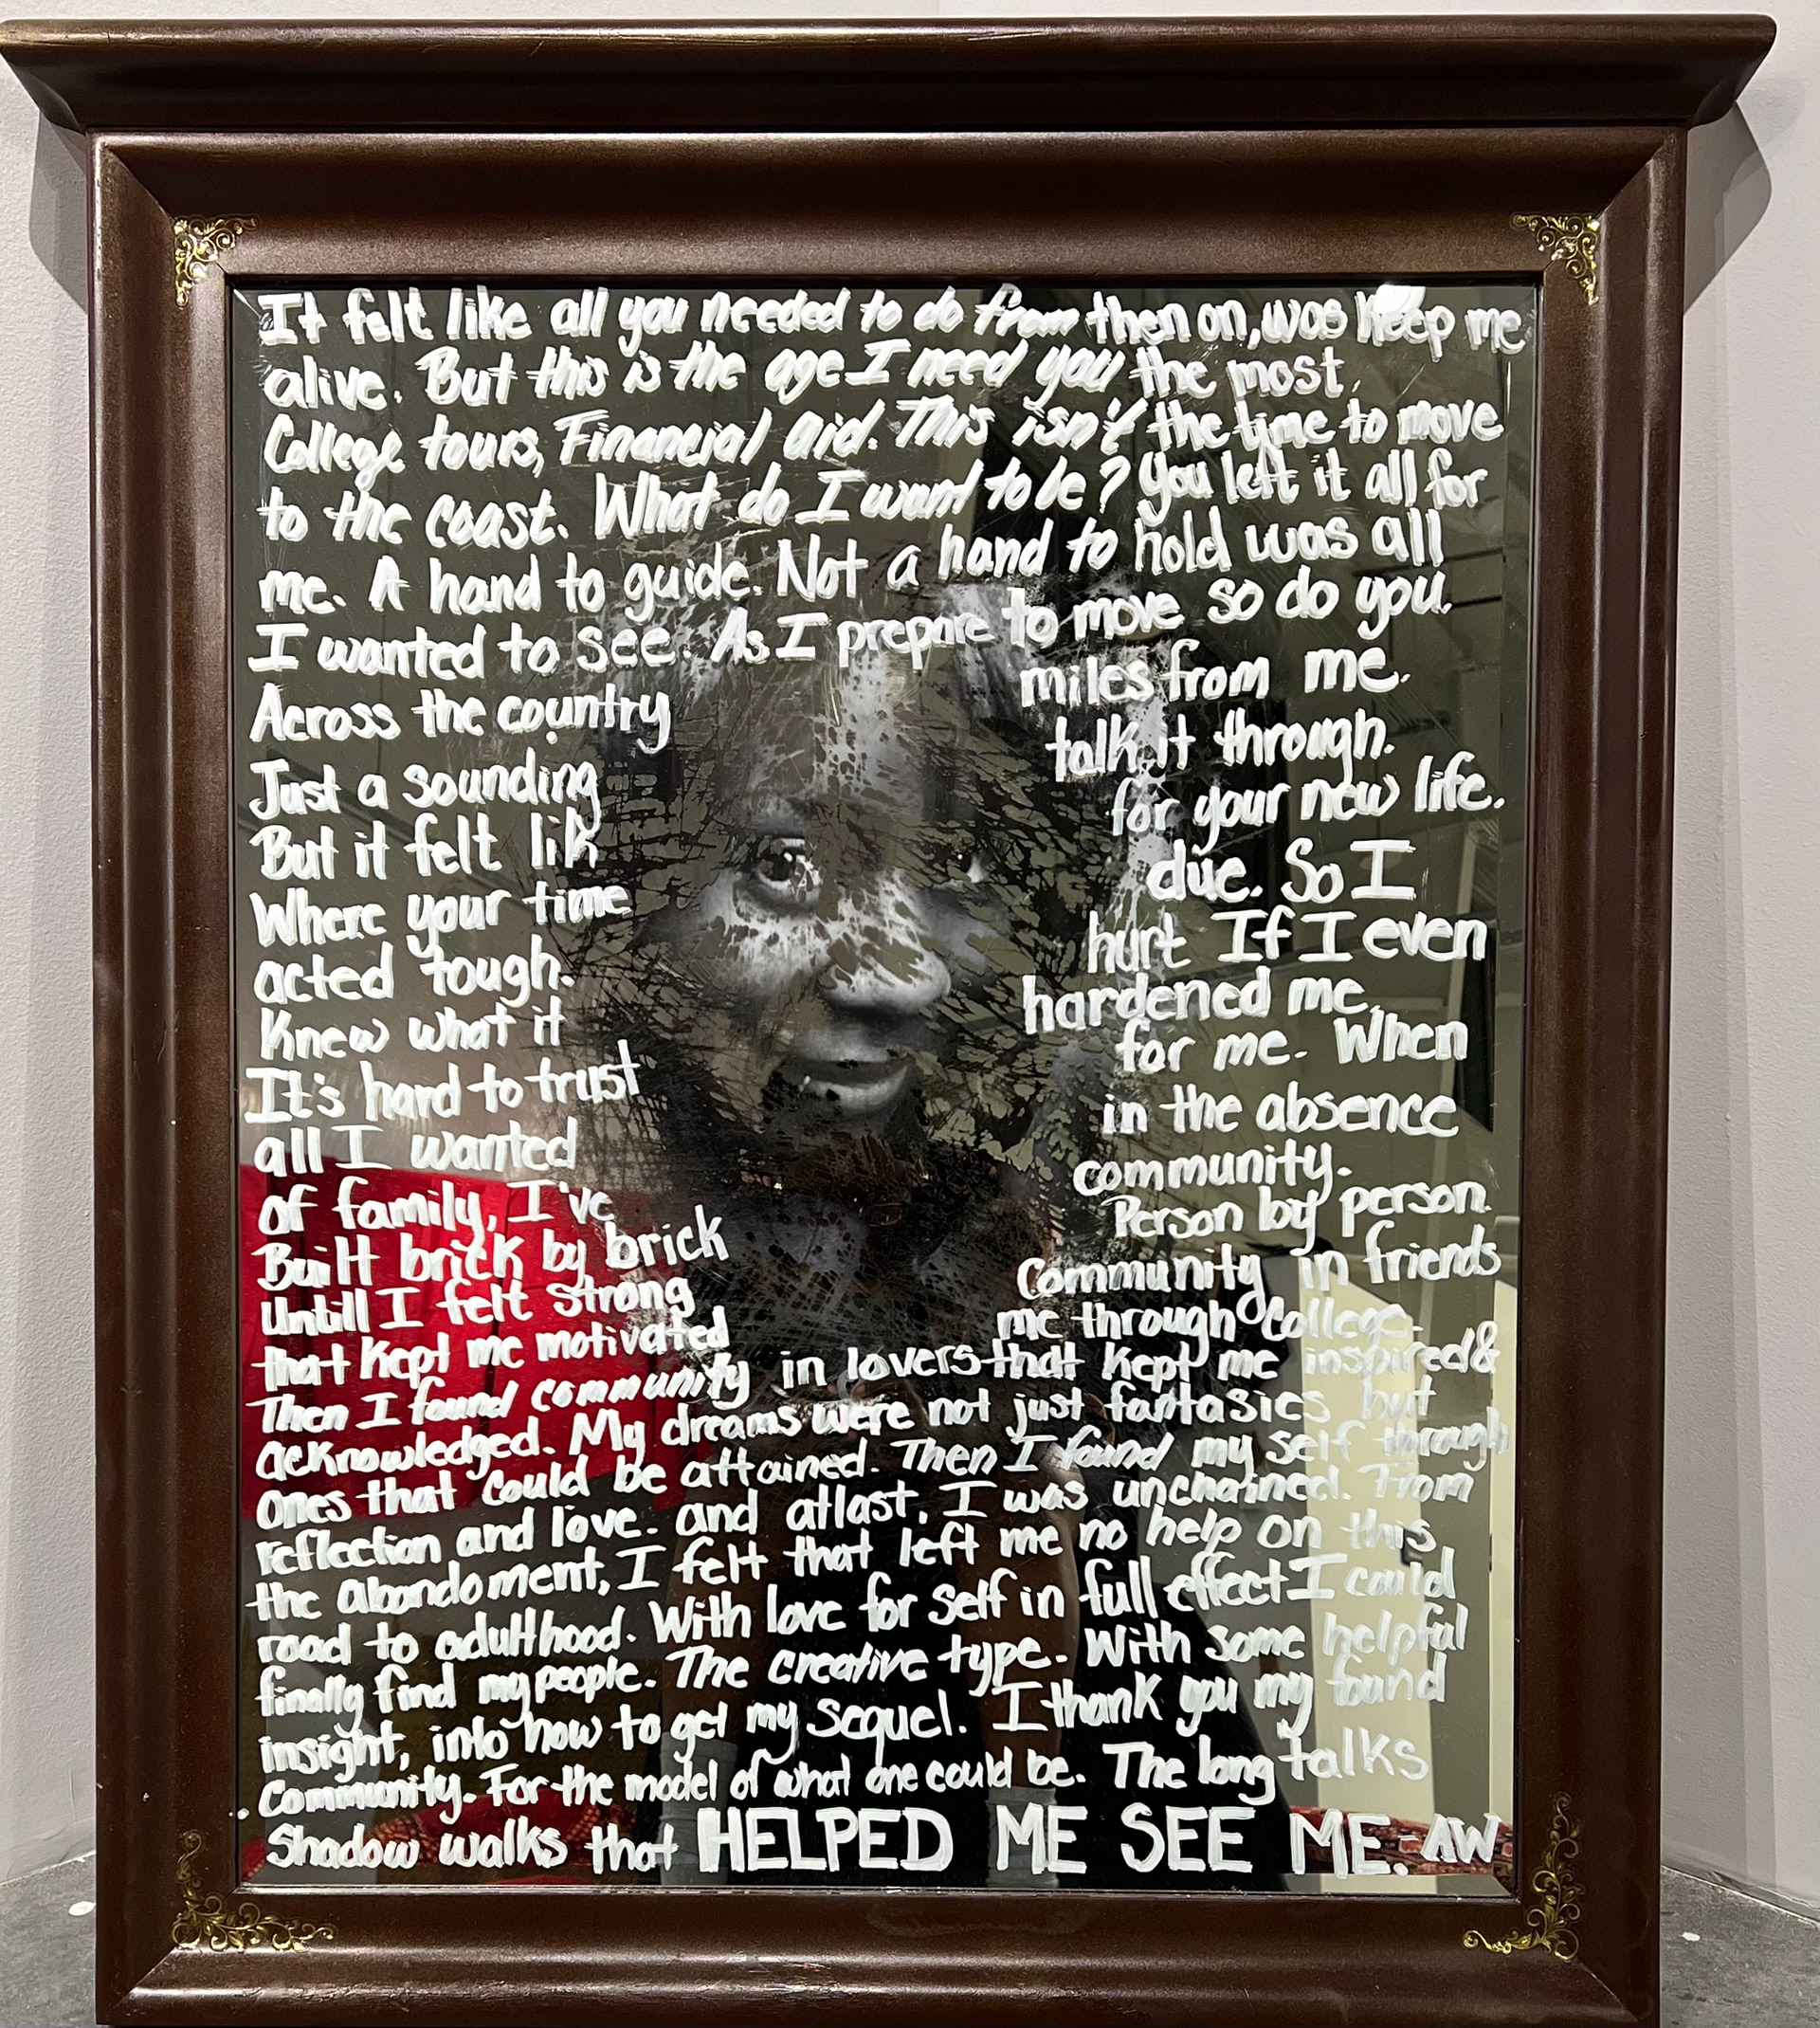 It felt like all you needed to do from then on, was keep me
alive. But this is the age I need you the most.
College tours, Financial aid. This isn't the time to move
to the coast. What do I want to be? You left it all for
me. A hand to guide. Not a hand to hold was all
I wanted to see. As I prepare to move so do you.
Across the country miles from me.
Just a sounding talk it through.
But it felt lik for your new life.
Where your time due. So I
acted tough. hurt If I even
Knew what it hardened me,
It's hard to trust for me. When
all I wanted in the absence
of family, I've community.
Built brick by brick Person by person.
Untill I felt strong Community in friends
that kept me motivated me through College.
Then I found community in lovers that kept me inspired&
acknowledged. My dreams were not just fantasies but
ones that could be attained. Then I found my self through
reflection and love. and atlast, I was unchained. From
the abandoment, I felt that left me no help on this
road to adulthood. With love for self in full effect I could
finally find my people. The creative type. With some helpful
insight, into how to get my sequel. I thank you my found
Community. For the model of what one could be. The long talks
Shadow walks that HELPED ME SEE ME. -AW